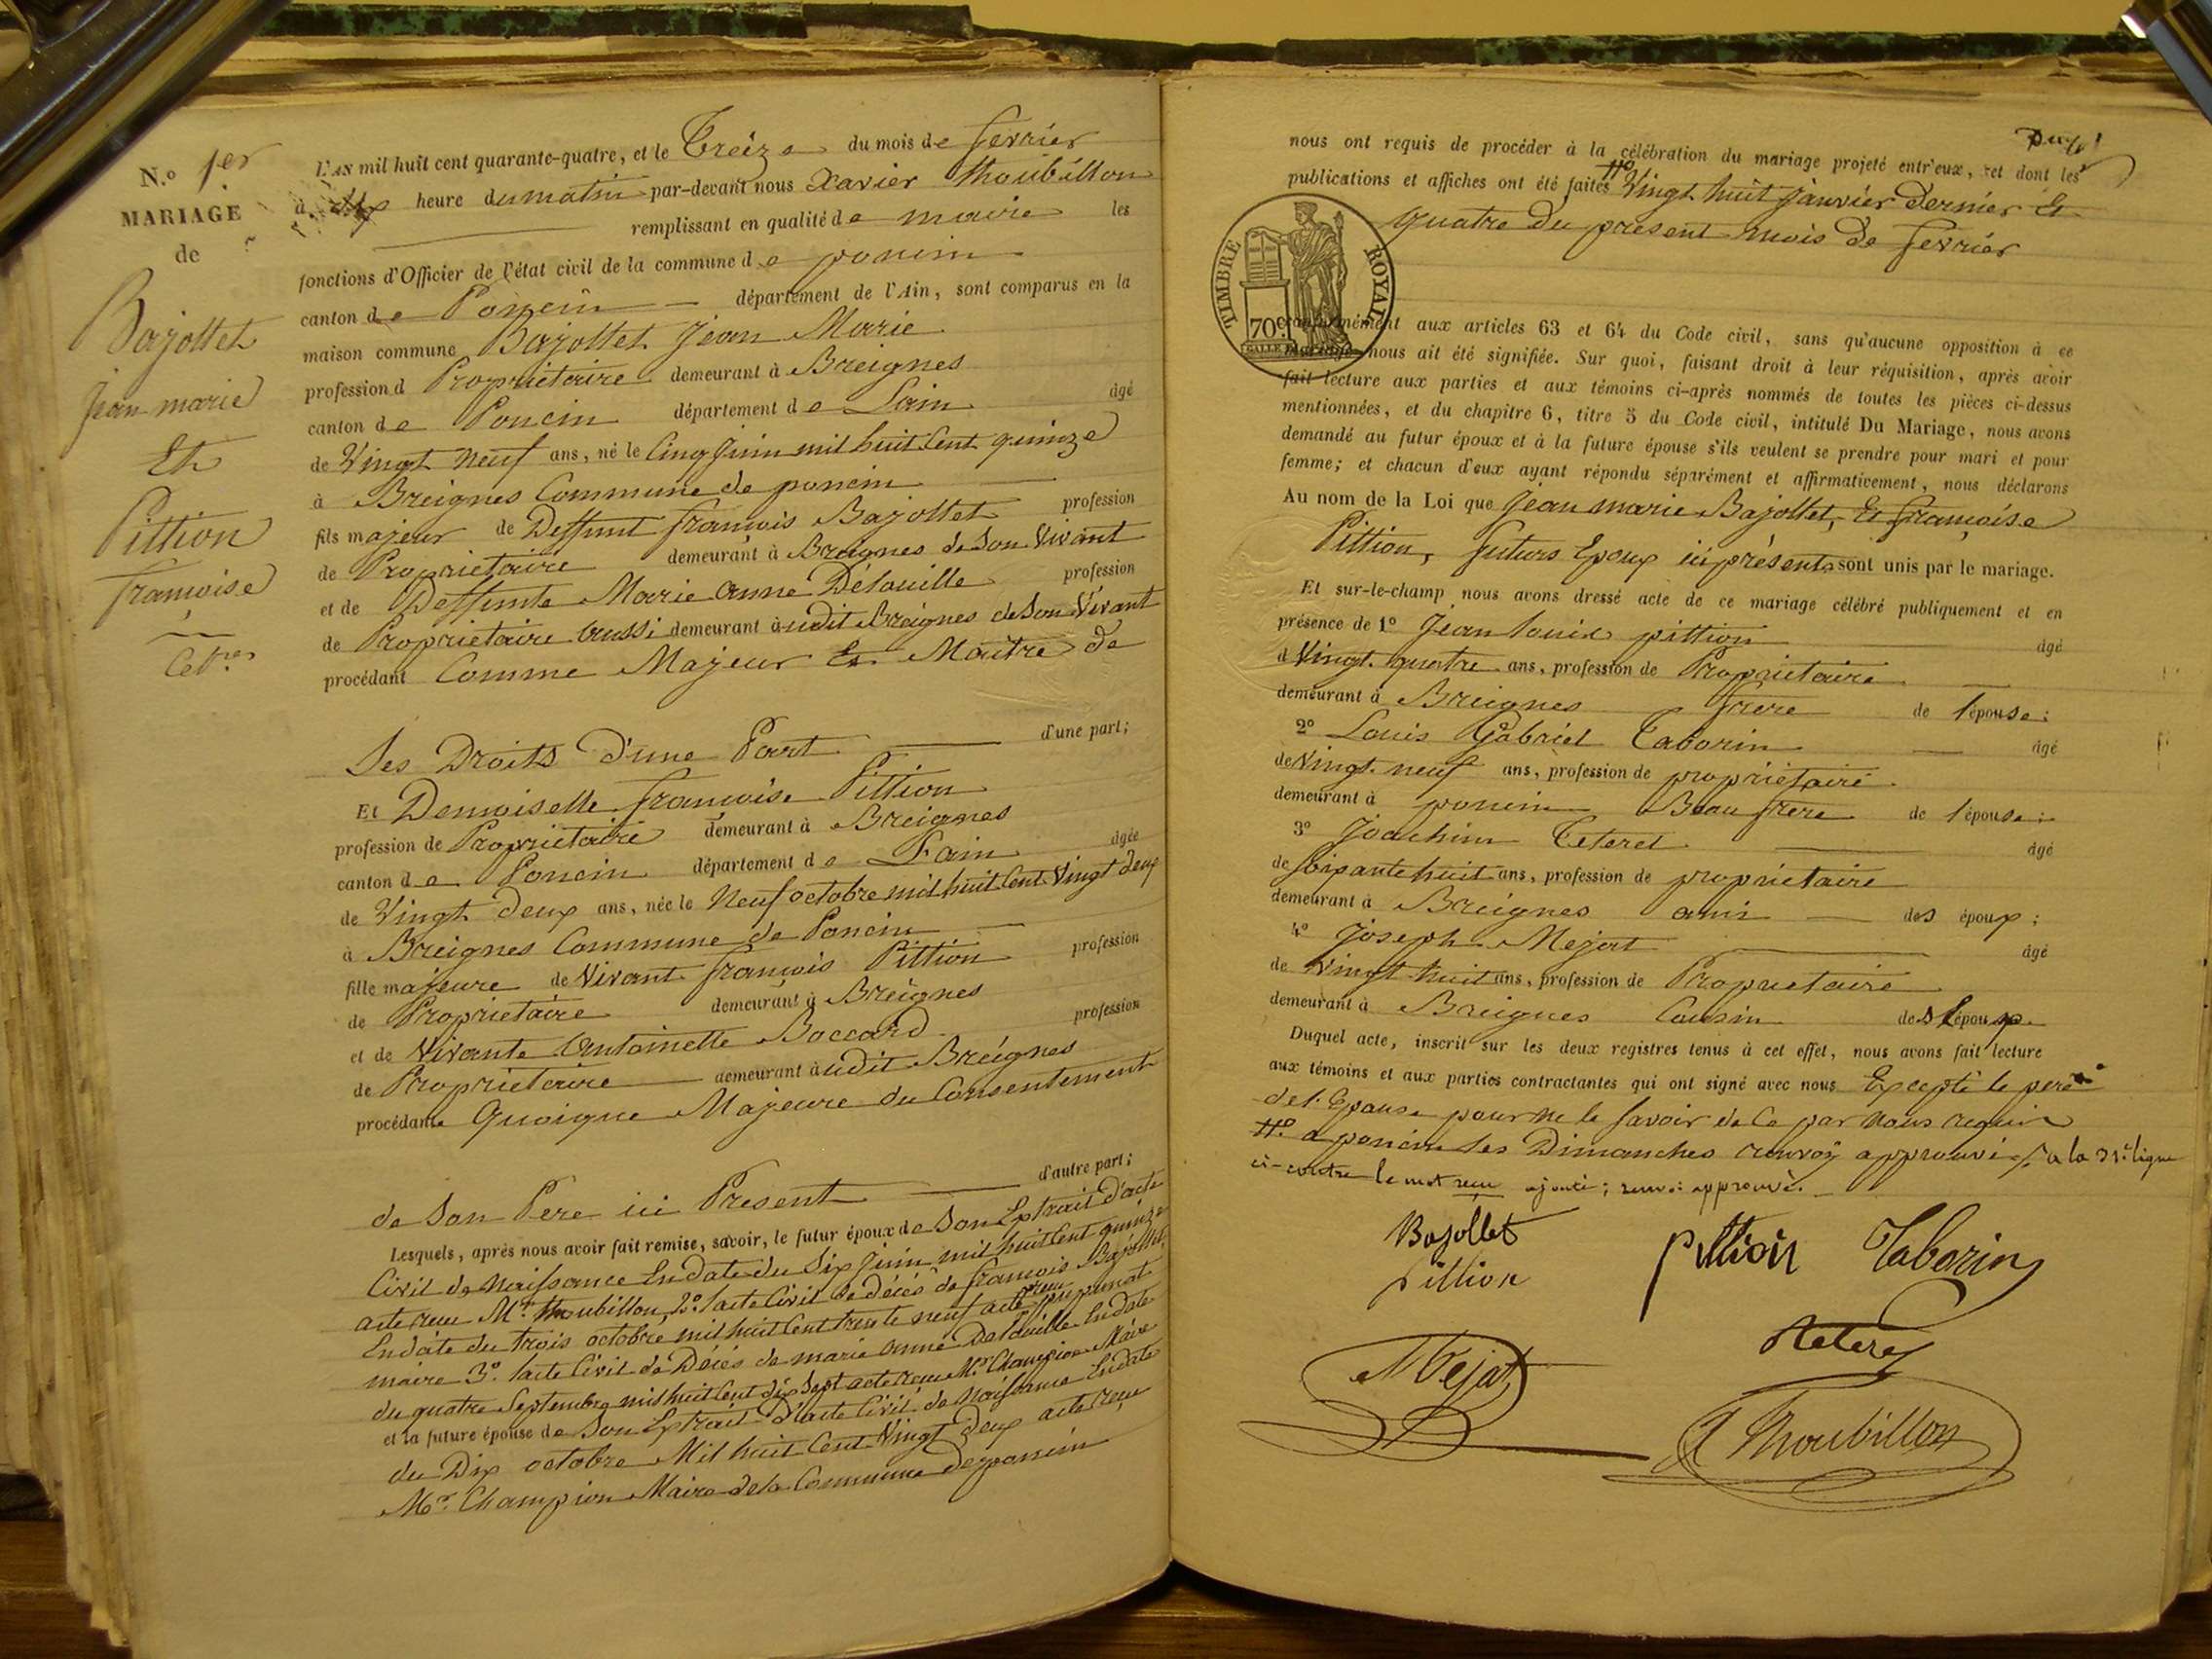 N.o 1er
MARIAGE
de
Bajollet
Jean marie
Et
Pittion
françoise
L'AN mil huit cent quarante-quatre, et le Treize du mois de fevrier
à dix heure du matin par-devant nous Xavier Thoubillon
remplissant en qualité de maire les
fonctions d'Officier de l'état civil de la commune de poncin
canton de Poncin département de l'Ain, sont comparus en la
maison commune Bajollet Jean Marie
profession d Propriétaire demeurant à Breignes
canton de Poncin département de Lain âgé
de Vingt neuf ans, né le Cinq Juin mil huit Cent quinze
à Breignes Commune de poncin
fils majeur de Deffunt françois Bajollet profession
de Propriétaire demeurant à Breignes de Son Vivant
et de Deffunte Marie anne Délouille profession
de Propriétaire aussi demeurant audit Breignes de Son Vivant
procédant Comme Majeur Et Maître de
Ses Droits D'une Part d'une part;
Et Demoiselle françoise Pittion
profession de Propriétaire demeurant à Breignes
canton de Poncin département de Lain âgée
de Vingt deux ans, née le Neuf octobre mil huit Cent Vingt deux
à Breignes Commune de Poncin
fille majeure de Vivant françois Pittion profession
de Propriétaire demeurant à Breignes
et de Vivante Antoinette Boccard profession
de Propriétaire demeurant audit Breignes
procédante Quoique Majeure du Consentement
de Son Pere ici Present d'autre part;
Lesquels, après nous avoir fait remise, savoir, le futur époux de Son Extrait d'acte
Civil de Naissance En date du Six Juin mil huit Cent quinze
acte reçu Mr. Thoubillon, 2o. l'acte Civil de décés de françois Bajollet
En date du trois octobre mil huit Cent trente neuf acte reçu
maire 3o. l'acte Civil de Décés de marie anne Delouille En date
du quatre Septembre mil huit Cent dix Sept acte reçu Mr. Champion Maire
et la future épouse de Son Extrait D'acte Civil de Naissance En date
du Dix octobre Mil huit Cent Vingt Deux acte reçu
Mr. Champion Maire de la Commune de poncin
nous ont requis de procéder à la célébration du mariage projeté entr'eux, et dont les deux
publications et affiches ont été faites Vingt huit Janvier Dernier Et
quatre Du présent mois De fevrier
TIMBRE ROYAL
70c
conformément aux articles 63 et 64 du Code civil, sans qu'aucune opposition à ce
mariage nous ait été signifiée. Sur quoi, faisant droit à leur réquisition, après avoir
fait lecture aux parties et aux témoins ci-après nommés de toutes les pièces ci-dessus
mentionnées, et du chapitre 6, titre 5 du Code civil, intitulé Du Mariage, nous avons
demandé au futur époux et à la future épouse s'ils veulent se prendre pour mari et pour
femme; et chacun d'eux ayant répondu séparément et affirmativement, nous déclarons
Au nom de la Loi que Jean marie Bajollet, Et françoise
Pittion, futurs Epoux ici présents sont unis par le mariage.
Et sur-le-champ nous avons dressé acte de ce mariage célébré publiquement et en
présence de 1o Jean Louis pittion âgé
d Vingt quatre ans, profession de Propriétaire
demeurant à Breignes frere de l'épouse;
2o Louis Gabriel Taborin âgé
de Vingt neuf ans, profession de propriétaire
demeurant à poncin Beau frere de l'épouse;
3o Joachim Teteret âgé
de Soixante huit ans, profession de propriétaire
demeurant à Breignes ami des époux;
4o Joseph Mejat âgé
de Vingt huit ans, profession de Propriétaire
demeurant à Breignes Cousin de l'époux
Duquel acte, inscrit sur les deux registres tenus à cet effet, nous avons fait lecture
aux témoins et aux parties contractantes qui ont signé avec nous Excepté le pere
de l'Epouse pour ne le Savoir de Ce par Nous requis
a poncin les Dimanches renvoy approuvé à la 31e ligne
ci-contre le mot reçu ajouté; renvoi approuvé.
Bajollet pittion Taborin
pittion
Mejat Teteret
Thoubillon